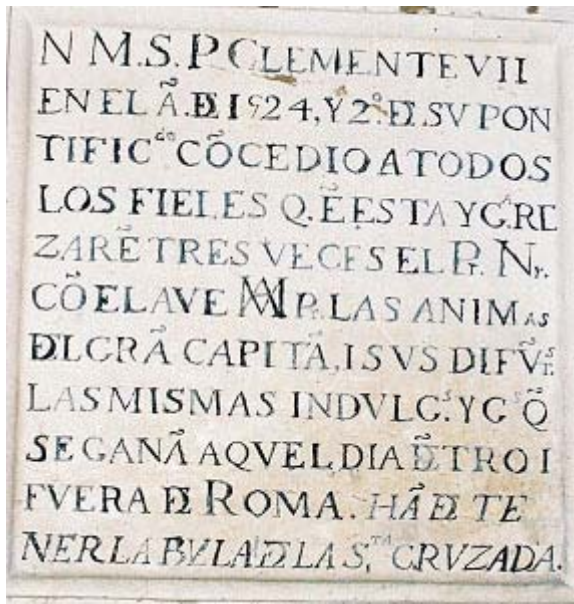 N M.S. P. CLEMENTE VII
EN EL Ã. DE 1524, Y 2º DE SV PON
TIFIC.ᵈᵒ CÕCEDIO A TODOS
LOS FIELES Q. Ẽ ESTA YGᴬ. RE
ZARẼ TRES VECES EL Pr. Nr.
CÕ EL AVE MA Pr. LAS ANIMAS
DEL GRÃ CAPITÃ, I SVS DIFṼTˢ.
LAS MISMAS INDVLG.ˢ Y Gˢ Q̃
SE GANÃ AQVEL DIA DẼTRO I
FVERA DE ROMA. HÃ DE TE
NER LA BVLA DE LA S,ᵀᴬ CRVZADA.